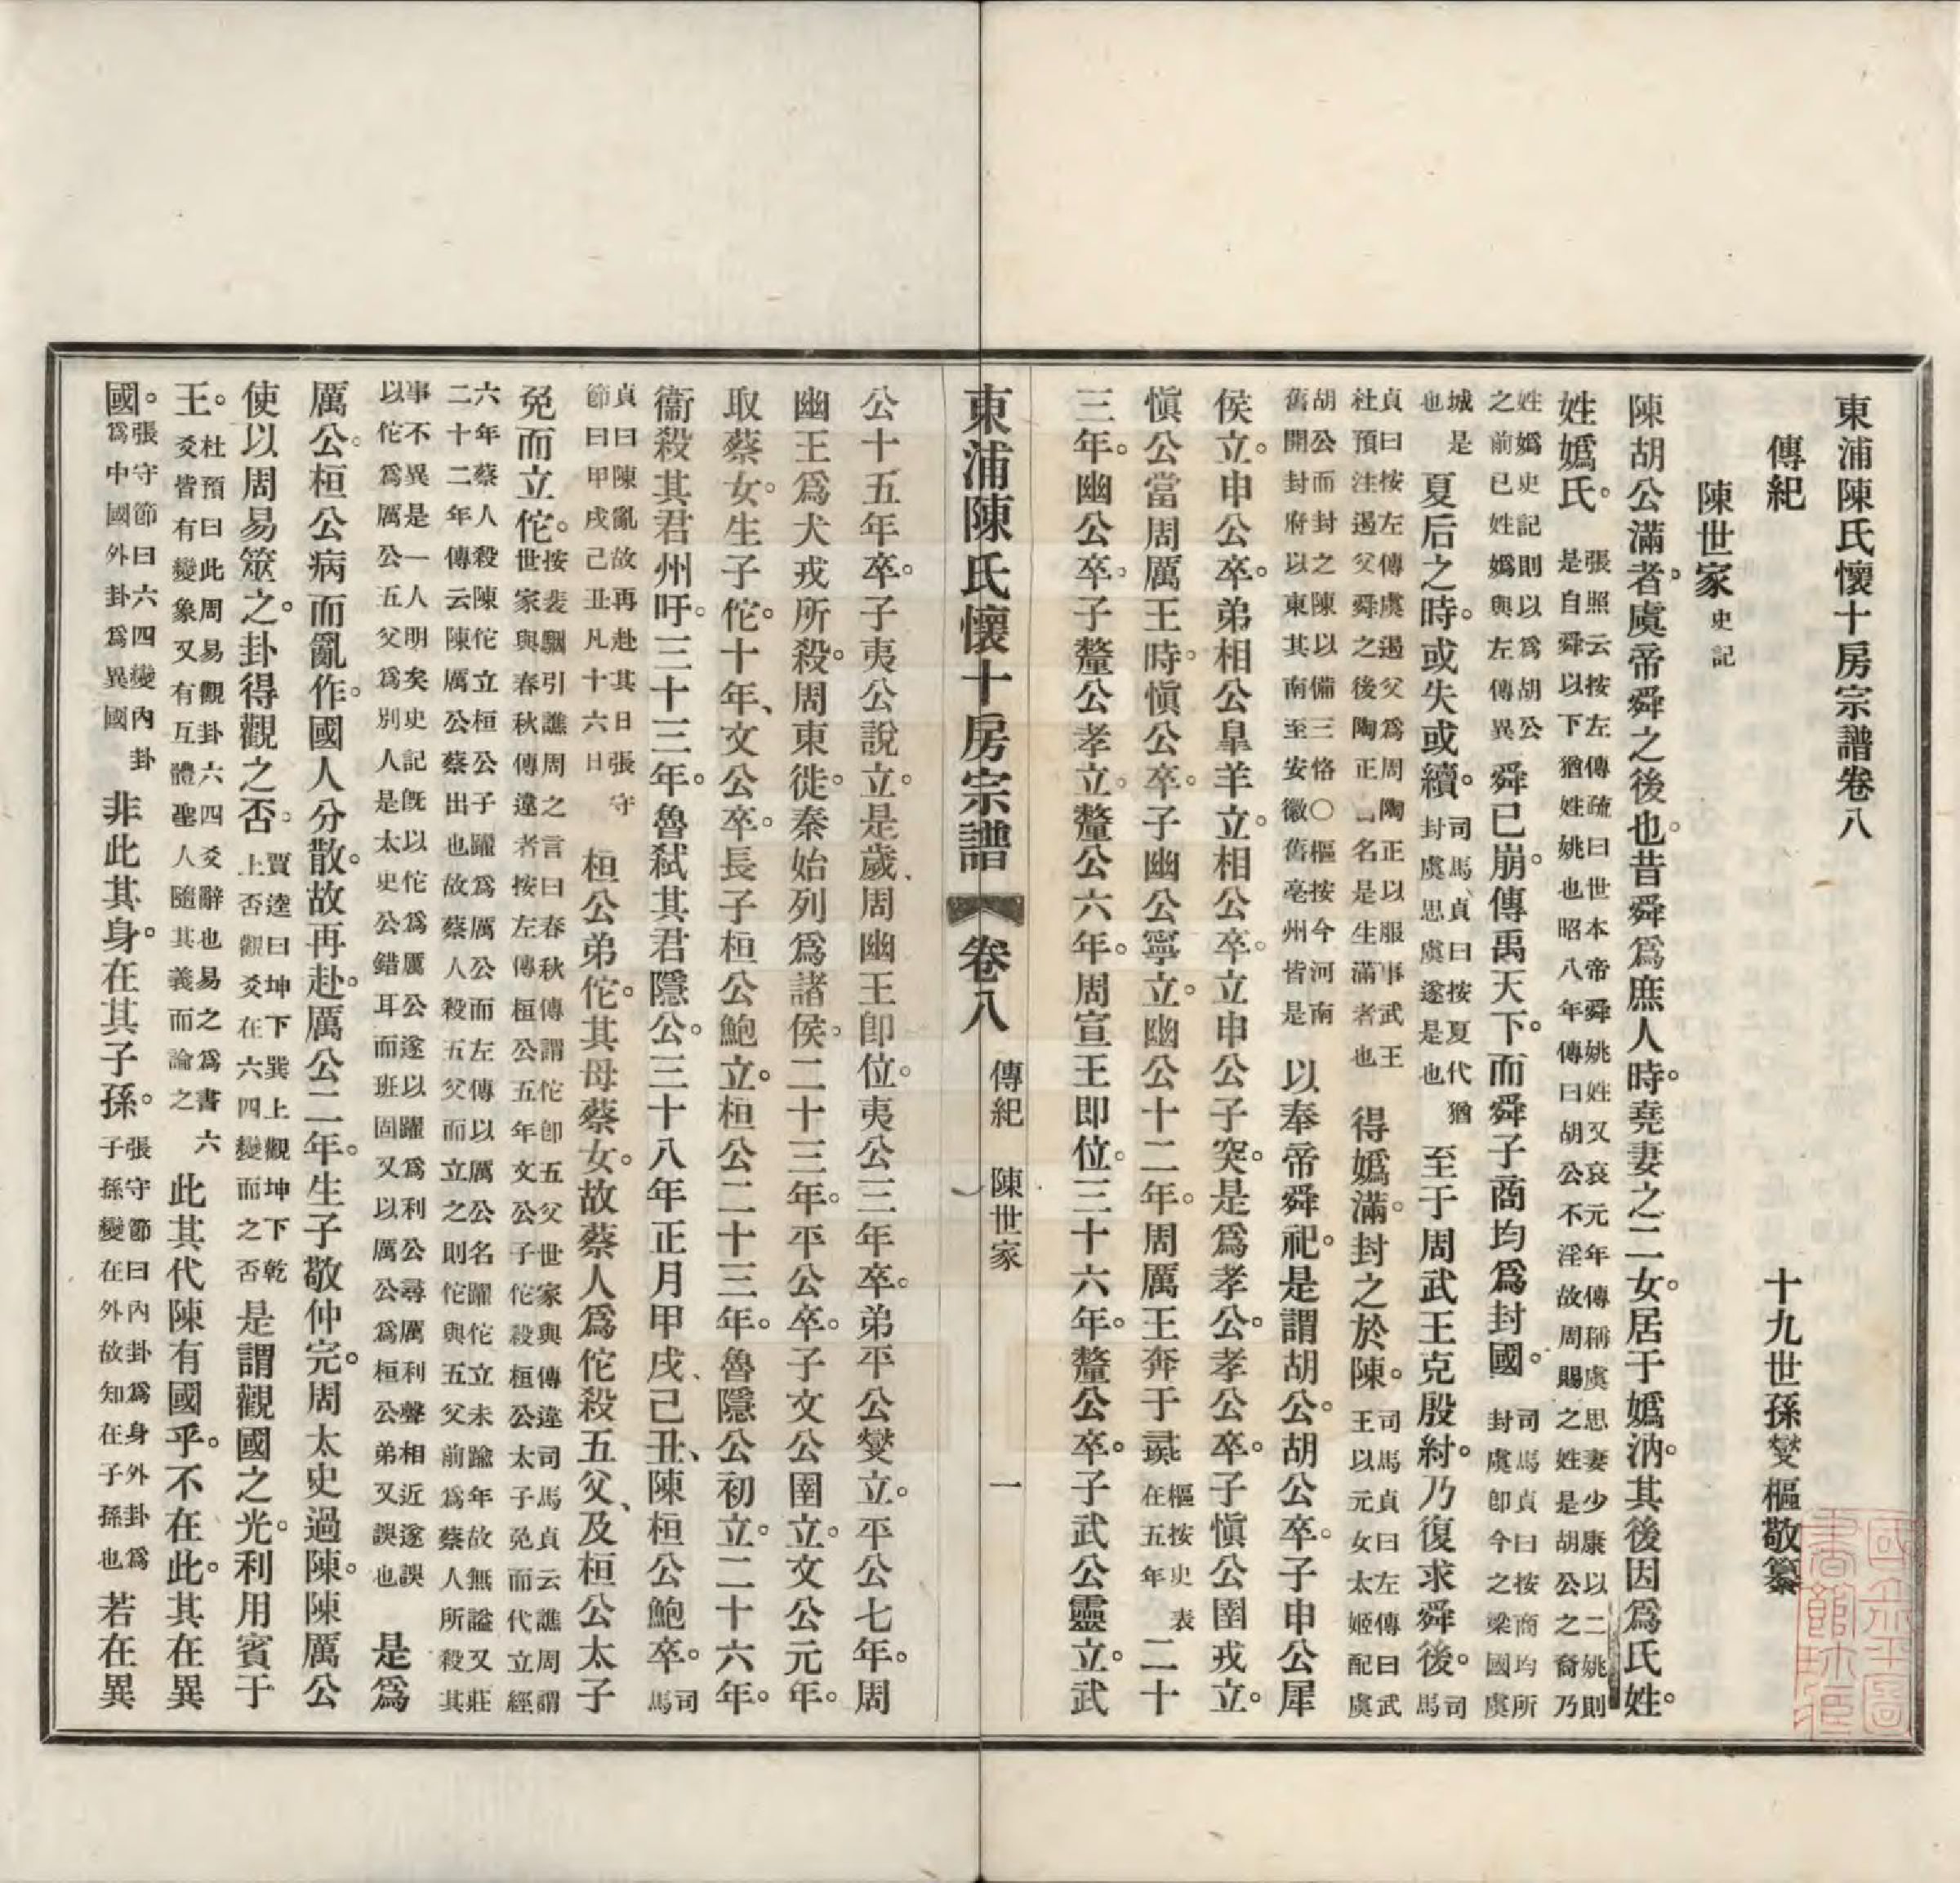 東浦陳氏懷十房宗譜卷八
傳紀　十九世孫燮樞敬纂
陳世家史記
陳胡公滿者虞帝舜之後也。昔舜爲庶人時。堯妻之二女。居于嬀汭。其後因爲氏姓。
姓嬀氏。張照云按左傳疏曰世本帝舜姚姓又哀元年傳稱虞思妻少康以二姚則是自舜以下猶姓姚也昭八年傳曰胡公不淫故周賜之姓是胡公之裔乃
姓嬀史記則以爲胡公之前已姓嬀與左傳異　舜已崩。傳禹天下。而舜子商均爲封國。司馬貞曰按商均所封虞卽今之梁國虞
城是也　夏后之時。或失或續。司馬貞曰按夏代猶封虞思虞遂是也　至于周武王克殷紂。乃復求舜後。司馬
貞曰按左傳虞遏父爲周陶正以服事武王杜預注遏父舜之後陶正官名是生滿者也　得嬀滿。封之於陳。司馬貞曰左傳曰武王以元女太姬配虞
胡公而封之陳以備三恪〇樞按今河南舊開封府以東其南至安徽舊亳州皆是　以奉帝舜祀。是謂胡公。胡公卒。子申公犀
侯立。申公卒。弟相公臯羊立。相公卒。立申公子突。是爲孝公。孝公卒。子愼公圉戎立。
愼公當周厲王時。愼公卒。子幽公寧立。幽公十二年。周厲王奔于彘。樞按史表在五年　二十
三年。幽公卒。子釐公孝立。釐公六年。周宣王即位。三十六年。釐公卒。子武公靈立。武
東浦陳氏懷十房宗譜　卷八　傳紀　陳世家　一
公十五年卒。子夷公說立。是歲、周幽王卽位。夷公三年卒。弟平公燮立。平公七年。周
幽王爲犬戎所殺。周東徙。秦始列爲諸侯。二十三年。平公卒。子文公圉立。文公元年。
取蔡女。生子佗。十年、文公卒。長子桓公鮑立。桓公二十三年。魯隱公初立。二十六年。
衞殺其君州吁。三十三年。魯弒其君隱公。三十八年正月甲戌、己丑、陳桓公鮑卒。司馬
貞曰陳亂故再赴其日張守節曰甲戌己丑凡十六日　桓公弟佗。其母蔡女。故蔡人爲佗殺五父、及桓公太子
免而立佗。按裴駰引譙周之言曰春秋傳謂佗卽五父世家與傳違司馬貞云譙周謂世家與春秋傳違者按左傳桓公五年文公子佗殺桓公太子免而代立經
六年蔡人殺陳佗立桓公子躍爲厲公而左傳以厲公名躍佗立未踰年故無謚又莊二十二年傳云陳厲公蔡出也故蔡人殺五父而立之則佗與五父前爲蔡人所殺其
事不異是一人明矣史記旣以佗爲厲公遂以躍爲利公尋厲利聲相近遂誤以佗爲厲公五父爲別人是太史公錯耳而班固又以厲公爲桓公弟又誤也　是爲
厲公。桓公病而亂作。國人分散。故再赴。厲公二年。生子敬仲完。周太史過陳。陳厲公
使以周易筮之。卦得觀之否。賈逵曰坤下巽上觀坤下乾上否觀爻在六四變而之否　是謂觀國之光。利用賓于
王。杜預曰此周易觀卦六四爻辭也易之爲書六爻皆有變象又有互體聖人隨其義而論之　此其代陳有國乎。不在此。其在異
國。張守節曰六四變內卦爲中國外卦爲異國　非此其身。在其子孫。張守節曰內卦爲身外卦爲子孫變在外故知在子孫也　若在異